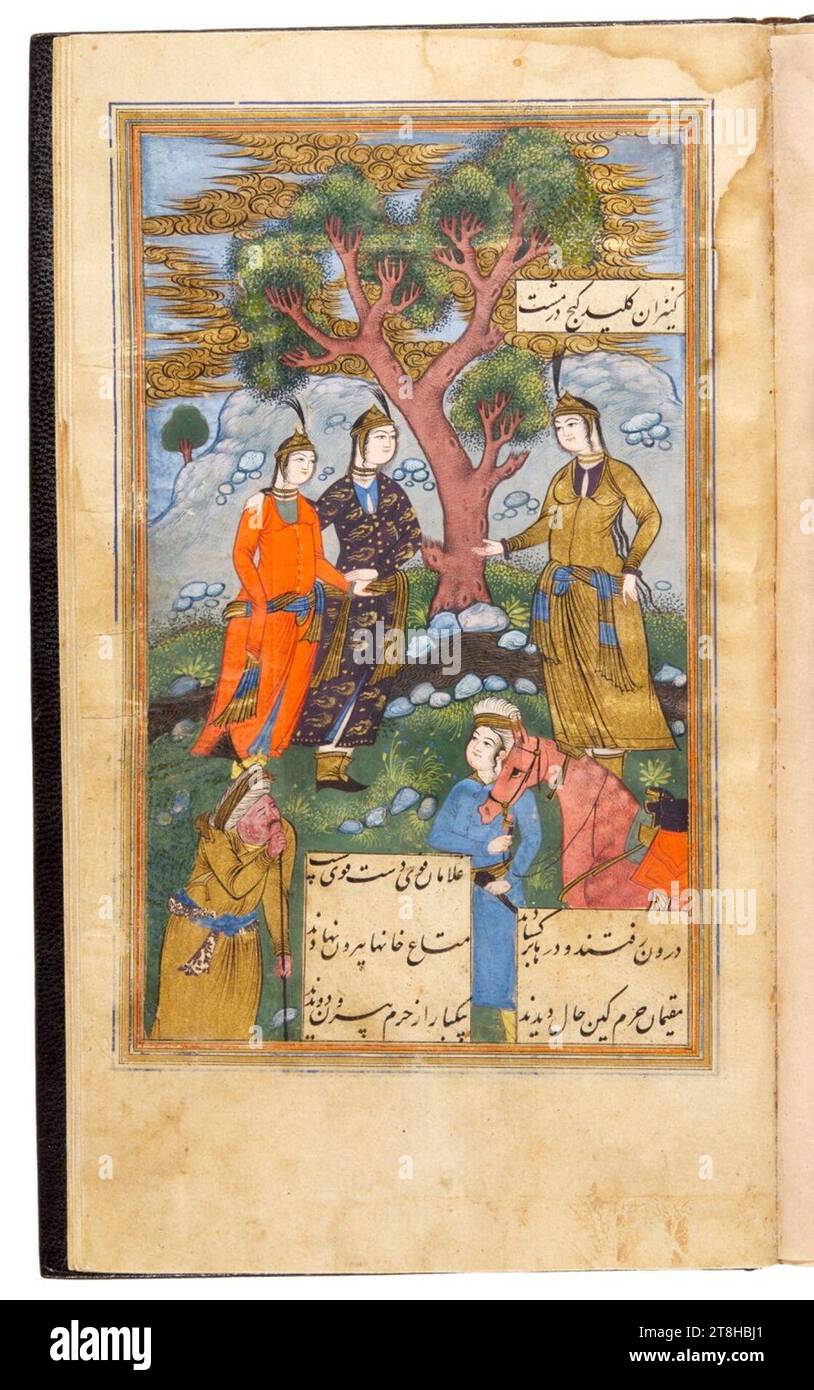 کنیزان کلید گنج در مشت
غلامان قوی دست قوی پشت
درون رفتند و درها برکشادند
متاع خانها بیرون نهادند
مقیمان حرم کین حال دیدند
بیکبار از حرم بیرون دویدند
alamy
Image ID: 2T8HBJ1
www.alamy.com